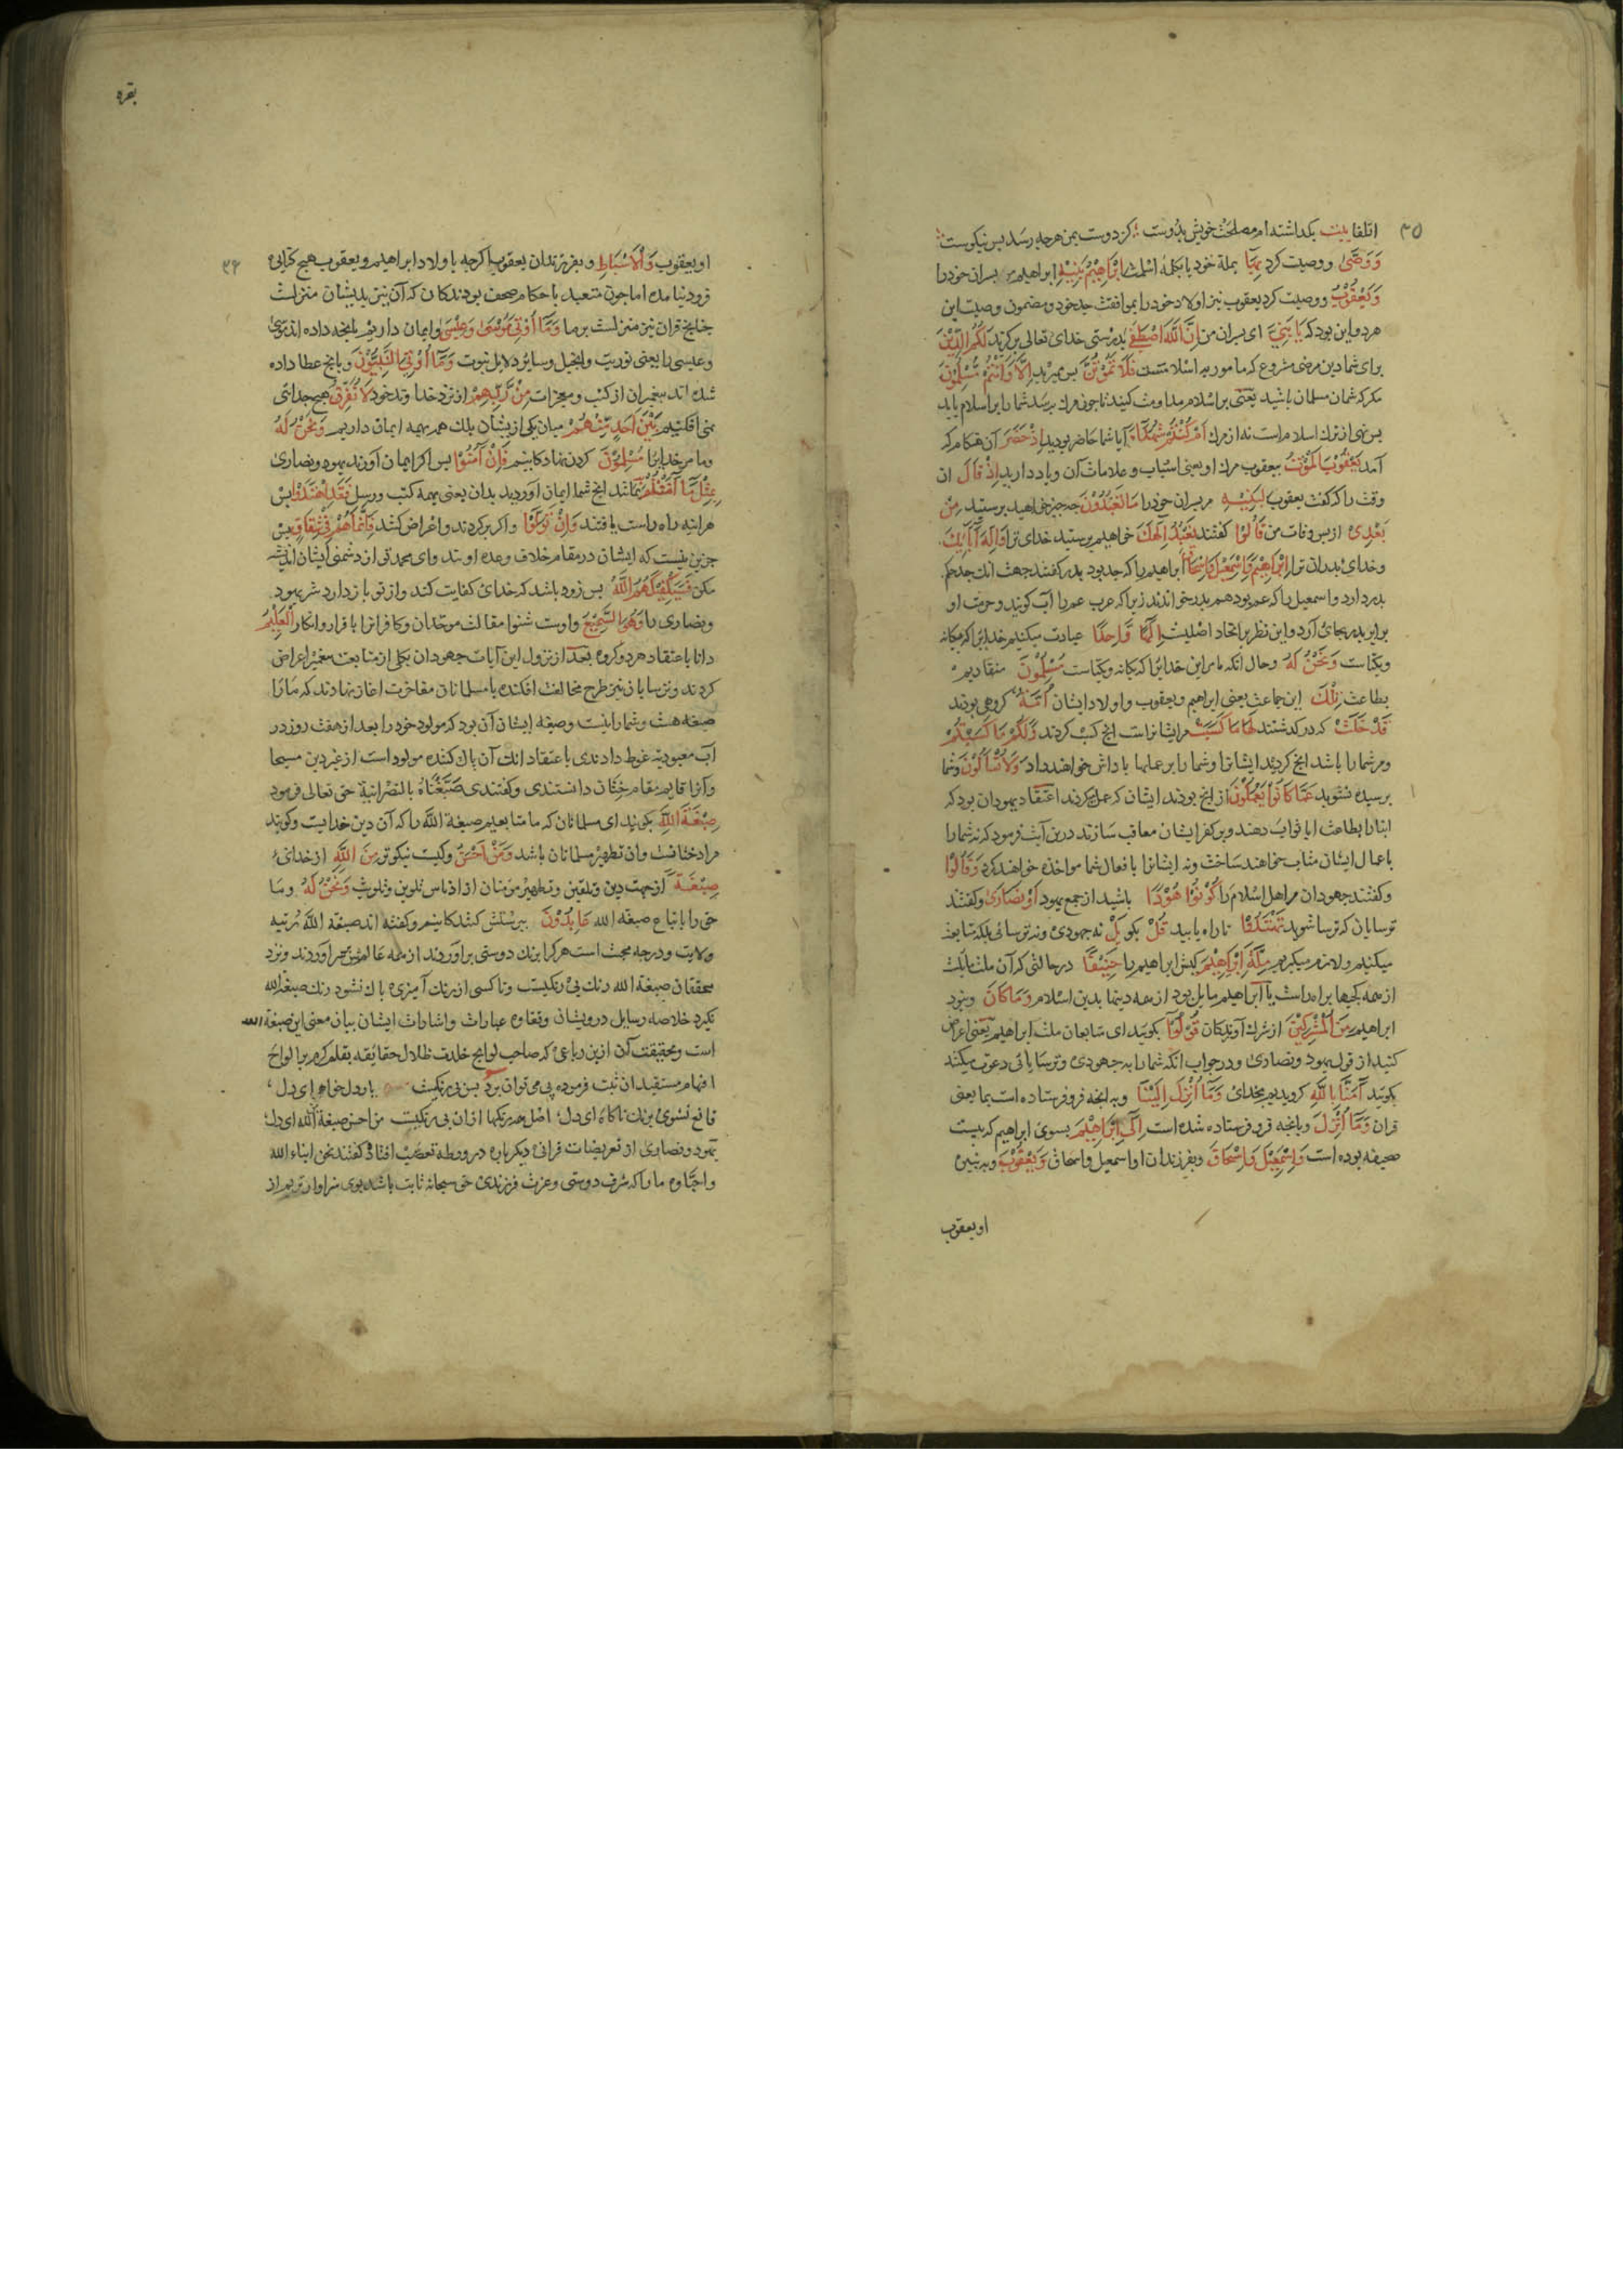 ۳۵
اتلفا بیت بکداشته ام مصلحت خویش بدوست کز دوست بمن هرچه رسد بس نیکوست
وَوَصَّیٰ ووصیت کرد بِهَا بملة خود یا بکلمهٔ اسلمت اِبْرَاهِیْمُ بَنِیْهِ ابراهیم مر پسران خود را
وَیَعْقُوْبُ ووصیت کرد یعقوب نیز اولاد خود را بموافقت جد خود ومضمون وصیت این
هر دو این بود که یَا بَنِیَّ ای پسران من اِنَّ اللّٰهَ اصْطَفٰی بدرستی خدای تعالی برکزید لَکُمُ الدِّیْنَ
برای شما دین مرضی مشروع که مامور به اسلامست فَلَا تَمُوْتُنَّ پس ممیرید اِلَّا وَاَنْتُمْ مُسْلِمُوْنَ
مکر که شمان مسلمان باشید یعنی بر اسلام مداومت کنید تا چون مرک برسد شما را بر اسلام یابد
پس نهی از ترک اسلام است نه از مرک اَمْ کُنْتُمْ شُهَدَاءَ آیا شما حاضر بودید اِذْ حَضَرَ آن هنکام که
آمد یَعْقُوْبَ الْمَوْتُ بیعقوب مرک او یعنی اسباب وعلامات آن ویاد دارید اِذْ قَالَ ان
وقت را که کفت یعقوب لِبَنِیْهِ مر پسران خود را مَا تَعْبُدُوْنَ چه چیز خواهید پرستید مِنْ
بَعْدِیْ از پس وفات من قَالُوْا کفتند نَعْبُدُ اِلٰهَکَ خواهیم پرستید خدای ترا وَاِلٰهَ اٰبَائِکَ
وخدای پدران ترا اِبْرَاهِیْمَ وَاِسْمٰعِیْلَ وَاِسْحَاقَ ابراهیم را که جد بود پدر کفتند جهت انک جد حکم
پدر دارد واسمعیل را که عم بود هم پدر خواندند زیرا که عرب عم را اب کویند وحرمت او
برابر پدر بجای آرد واین نظر بر اتحاد اصلیت اِلٰهًا وَاحِدًا عبادت میکنیم خدایرا که یکانه
ویکتاست وَنَحْنُ لَهُ وحال انکه ما مر این خدایرا که یکانه ویکتاست مُسْلِمُوْنَ منقادیم
بطاعت تِلْکَ این جماعت یعنی ابراهیم ویعقوب واولاد ایشان اُمَّةٌ کروهی بودند
قَدْ خَلَتْ که در کدشتند لَهَا مَا کَسَبَتْ مر ایشانراست انچ کسب کردند وَلَکُمْ مَا کَسَبْتُمْ
ومر شما را باشد انچ کردید ایشانرا وشما را بر عملها پاداش خواهند داد وَلَا تُسْاَلُوْنَ وشما
پرسیده نشوید عَمَّا کَانُوْا یَعْمَلُوْنَ از انچ بودند ایشان که عمل میکردند اعتقاد یهودان بود که
ابنا را بطاعت ابا ثواب دهند وبر کفر ایشان معاقب سازند درین آیت فرمود که نه شما را
باعمال ایشان مثاب خواهند ساخت ونه ایشانرا بافعال شما مواخذه خواهند کرد وَقَالُوْا
وکفتند جهودان مر اهل اسلام را کُوْنُوْا هُوْدًا باشید از جمع یهود اَوْ نَصَارٰی وکفتند
ترسایان که ترسا شوید تَهْتَدُوْا تا راه یابید قُلْ بکو بَلْ نه جهودی ونه ترسائی بلکه متابعت
میکنیم ولازم میکیریم مِلَّةَ اِبْرَاهِیْمَ کیش ابراهیم را حَنِیْفًا در حالتی که آن ملت مایلست
از همه کجیها براه راست یا ابراهیم مایل بود از همه دینها بدین اسلام وَمَا کَانَ ونبود
ابراهیم مِنَ الْمُشْرِکِیْنَ از شرک آورندکان قُوْلُوْا بکویید ای متابعان ملت ابراهیم یعنی اعراض
کنید از قول یهود ونصاری ودر جواب انکه شما را به جهودی وترسایائی دعوت میکنند
بکویید اٰمَنَّا بِاللّٰهِ کرویدیم بخدای وَمَا اُنْزِلَ اِلَیْنَا وبه انچه فرو فرستاده است بما یعنی
قران وَمَا اُنْزِلَ وبانچه فرو فرستاده شده است اِلٰی اِبْرَاهِیْمَ بسوی ابراهیم که بیست
صحیفه بوده است وَاِسْمٰعِیْلَ وَاِسْحَاقَ وبفرزندان او اسمعیل واسحاق وَیَعْقُوْبَ وبه نبیره
او یعقوب
بقره
۳۶
او یعقوب وَالْاَسْبَاطِ وبفرزندان یعقوب اکرچه باولاد ابراهیم ویعقوب هیچ کتابی
فرود نیامده اما چون متعبد باحکام صحف بودند کان که آن نیز بدیشان منزلست
چنانچ قران نیز منزلست بر ما وَمَا اُوْتِیَ مُوْسٰی وَعِیْسٰی وایمان داریم بانچه داده اند موسی
وعیسی را یعنی توریت وانجیل وسایر دلایل نبوت وَمَا اُوْتِیَ النَّبِیُّوْنَ وبانچ عطا داده
شده اند پیغمبران از کتب ومعجزات مِنْ رَبِّهِمْ از نزد خداوند خود لَا نُفَرِّقُ هیچ جدائی
نمی افکنیم بَیْنَ اَحَدٍ مِنْهُمْ میان یکی از یشان بلک همه ایمان داریم وَنَحْنُ لَهُ
وما مر خدایرا مُسْلِمُوْنَ کردن نهادکانیم فَاِنْ اٰمَنُوْا پس اکر ایمان آورند یهود ونصاری
بِمِثْلِ مَا اٰمَنْتُمْ بِهِ مانند انچ شما ایمان آوردید بدان یعنی بهمه کتب ورسل فَقَدِ اهْتَدَوْا پس
هر اینه راه راست یافتند وَاِنْ تَوَلَّوْا واکر برکردند واعراض کنند فَاِنَّمَا هُمْ فِیْ شِقَاقٍ پس
جزین نیست که ایشان در مقام خلاف وعداوتند وای محمد تو از دشمنی ایشان اندیشه
مکن فَسَیَکْفِیْکَهُمُ اللّٰهُ پس زود باشد که خدای کفایت کند واز تو باز دارد شر یهود
ونصاری را وَهُوَ السَّمِیْعُ واوست شنوا مقالت موحدان وکافرانرا باقرار وانکار الْعَلِیْمُ
دانا باعتقاد هر دو کروه بعد از نزول این آیات جهودان بکلی از متابعت پیغمبر اعراض
کردند وترسایان نیز طرح مخالفت افکنده با مسلمانان مفاخرت اغاز نهادند که ما را
صبغه هست وشما را نیست وصبغه ایشان آن بود که مولود خود را بعد از هفت روز در
آب معبودیه غوط دادندی باعتقاد انک آن پاک کننده مولود است از غیر دین مسیحا
وآنرا قایم مقام ختان دانستندی وکفتندی صَبَغْنَاهُ بالنصرانیة حق تعالی فرمود
صِبْغَةَ اللّٰهِ بکویید ای مسلمانان که ما متابعیم صبغة اللّٰه را که آن دین خداییست وکویند
مراد ختانست وان تطهیر مسلمانان باشد وَمَنْ اَحْسَنُ وکیست نیکوتر مِنَ اللّٰهِ از خدای
صِبْغَةً از جهت دین وتلقین وتطهیر مومنان از ادناس تلوین وتلویث وَنَحْنُ لَهُ وما
حق را باتباع صبغه الله عَابِدُوْنَ پرستش کنندکانیم وکفته اند صبغة اللّٰه رُتبه
ولایت ودرجه محبت است هر کرا برنک دوستی بر آوردند از همه عالمش بر آوردند ونزد
محققان صبغة الله رنک بی رنکیست وتا کسی از رنک آمیزی پاک نشود رنک صبغة الله
نکیرد خلاصه رسایل درویشان ونقاوه عبارات واشارات ایشان بیان معنی این صبغة الله
است وحقیقت آن ازین رباعی که صاحب لوایح خلدت ظلال حقائقه بقلم کرم بر الواح
افهام مستفیدان ثبت فرموده پی می توان برد بس بی رنکیست یار دلخواه ای دل
قانع نشوی برنک ناکاه ای دل اصل همه رنکها ازان بی رنکیست من احسن صبغة اللّٰه ای دل
یهود ونصاری از تعریضات قرانی دیکر باره در ورطه تعصب افتاده کفتند نحن ابناء الله
واحباوه ما را که شرف دوستی وعزت فرزندی حق سبحانه ثابت باشد بوی سزاوار تریم از